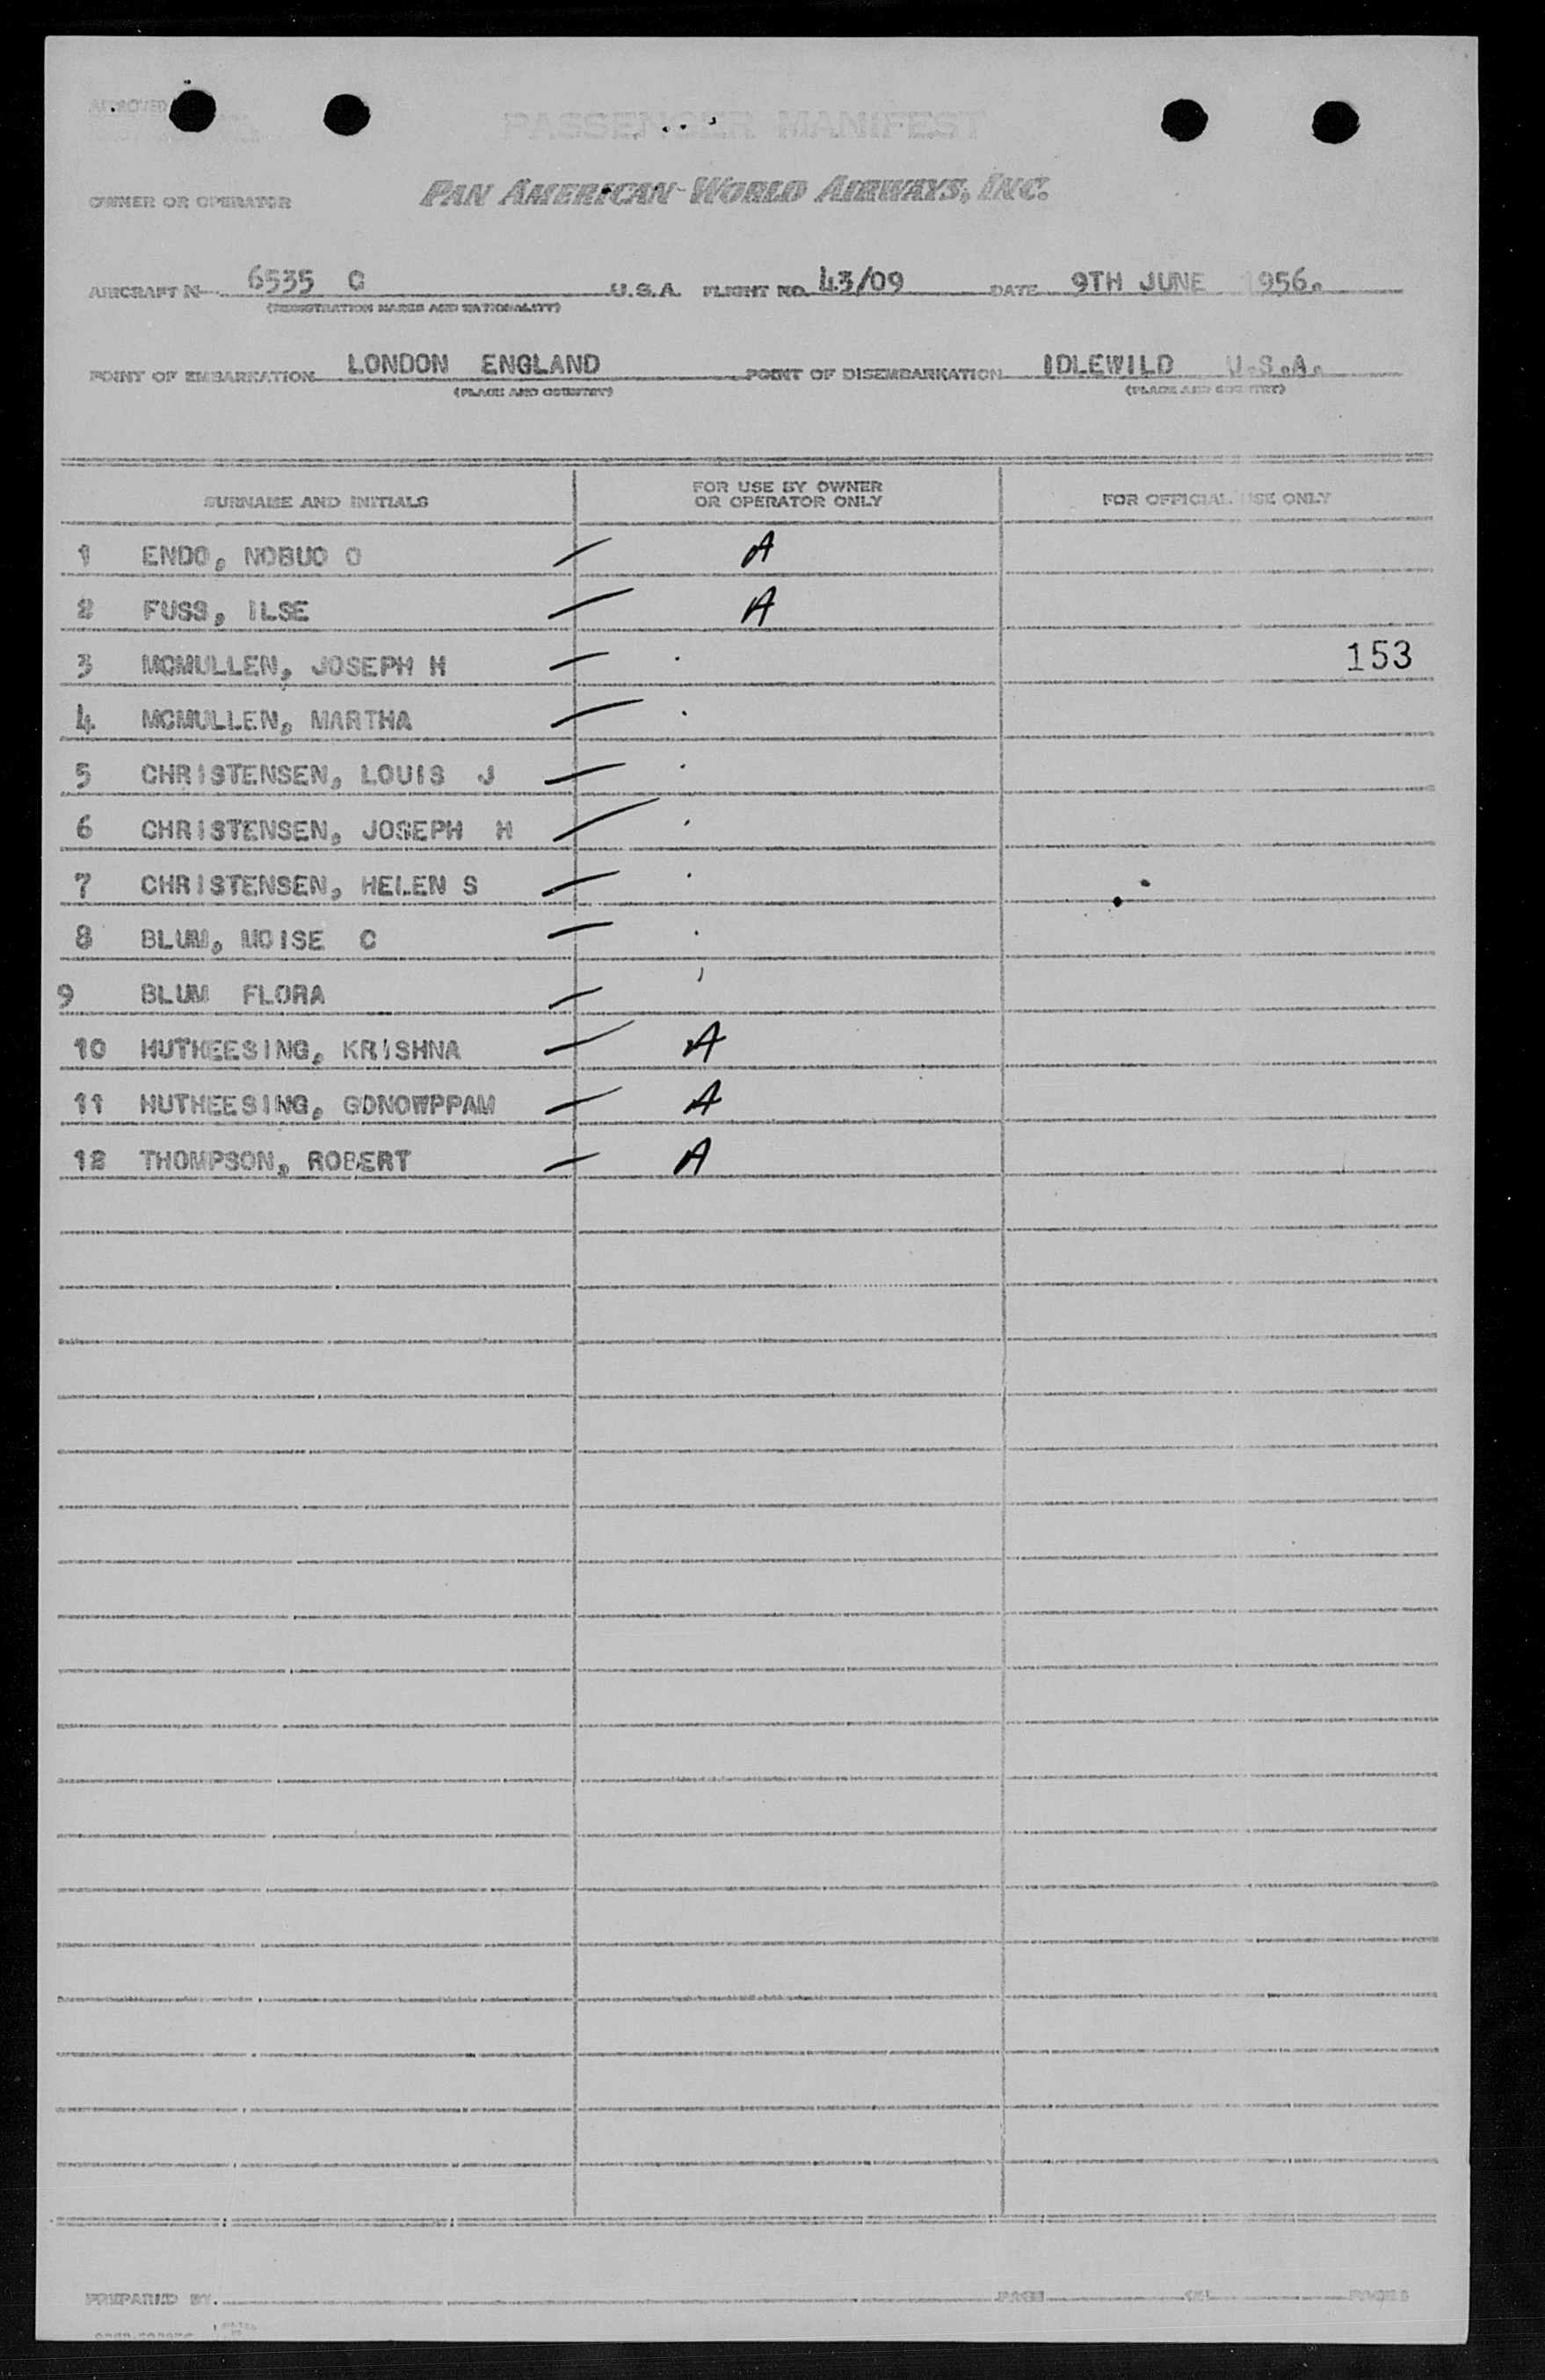 APPROVED
PASSENGER MANIFEST
OWNER OR OPERATOR PAN AMERICAN WORLD AIRWAYS, INC.
AIRCRAFT N 6535 C U.S.A. FLIGHT NO. 43/09 DATE 9TH JUNE 1956.
(REGISTRATION MARKS AND NATIONALITY)
POINT OF EMBARKATION LONDON ENGLAND POINT OF DISEMBARKATION IDLEWILD U.S.A.
(PLACE AND COUNTRY) (PLACE AND COUNTRY)
SURNAME AND INITIALS FOR USE BY OWNER OR OPERATOR ONLY FOR OFFICIAL USE ONLY
1 ENDO, NOBUO O — A
2 FUSS, ILSE — A
3 MCMULLEN, JOSEPH H — 153
4 MCMULLEN, MARTHA —
5 CHRISTENSEN, LOUIS J —
6 CHRISTENSEN, JOSEPH H —
7 CHRISTENSEN, HELEN S —
8 BLUM, MOISE C —
9 BLUM FLORA —
10 HUTHEESING, KRISHNA — A
11 HUTHEESING, GONOWPPAM — A
12 THOMPSON, ROBERT — A
PREPARED BY PAGE OF PAGES